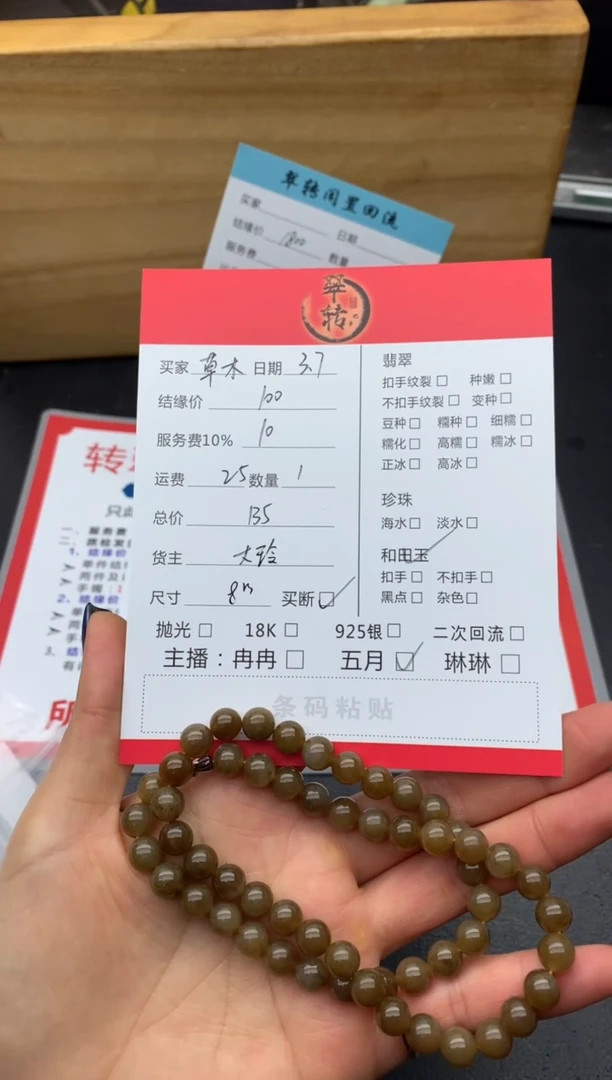 翠转闲置回流
买家 日期
结缘价 1800
服务费 数量
翠转
买家 草木 日期 3.7
结缘价 100
服务费10% 10
运费 25 数量 1
总价 135
货主 大玲
尺寸 8m 买断 ☑
翡翠
扣手纹裂 □ 种嫩 □
不扣手纹裂 □ 变种 □
豆种 □ 糯种 □ 细糯 □
糯化 □ 高糯 □ 糯冰 □
正冰 □ 高冰 □
珍珠
海水 □ 淡水 □
和田玉
扣手 □ 不扣手 □
黑点 □ 杂色 □
抛光 □ 18K □ 925银 □ 二次回流 □
主播：冉冉 □ 五月 ☑ 琳琳 □
条码粘贴
转
只
一、服务费
二、质检发
1、结缘价
单件结
两件及
手镯：1
2、结缘价
单
两
手
3、结
有
所